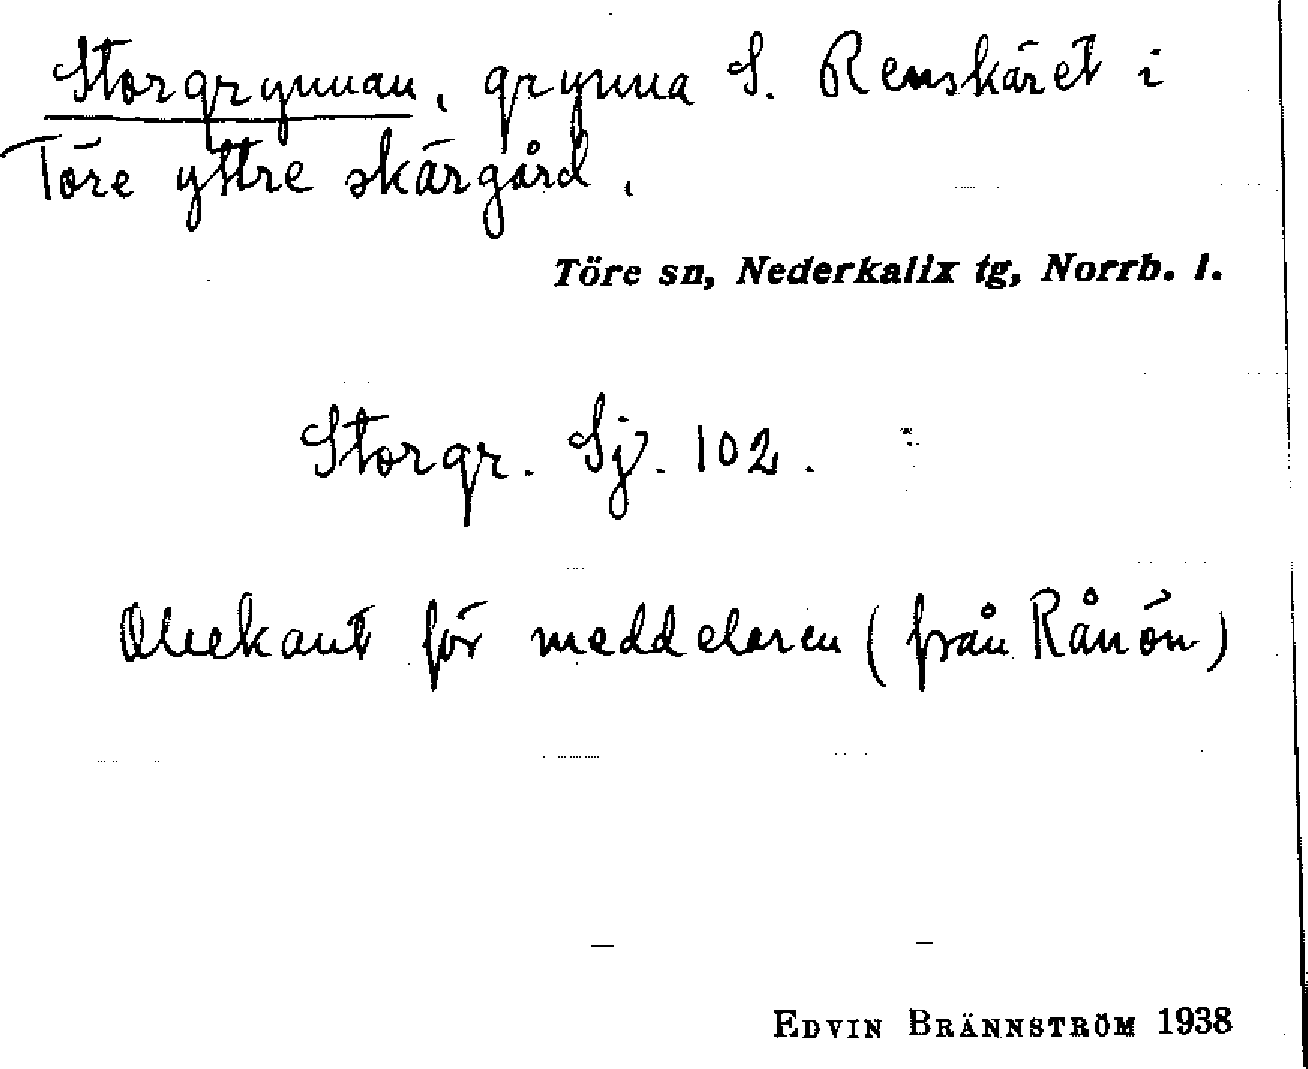 Storgrynnan, grynna S. Renskäret i
Töre yttre skärgård.
Töre sn, Nederkalix tg, Norrb. l.
Storgr. Sj. 102.
Obekant för meddelaren (från Rånön)
EDVIN BRÄNNSTRÖM 1938